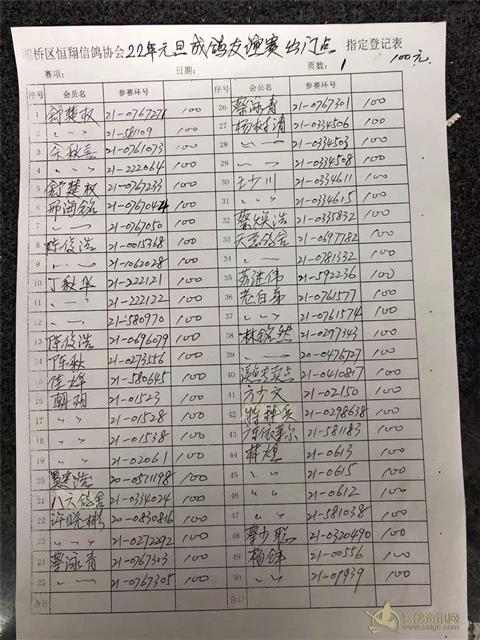 桥区恒翔信鸽协会22年元旦成鸽友谊赛出门点 指定登记表
赛项： 日期： 页数：1 100元
序号 会员名 参赛环号
1 舒楚权 21-0767271 100
2 〃 21-581109 100
3 余秋喜 21-0761073 100
4 〃 21-222064 100
5 舒楚权 21-0767233 100
6 邢海铭 21-0767044 100
7 〃 21-0767050 100
8 陈俊浩 21-0015368 100
9 〃 21-1062028 100
10 丁秋华 21-222121 100
11 〃 21-222122 100
12 〃 21-580970 100
13 陈俊浩 21-0696079 100
14 陈秋 21-0273556 100
15 佳烽 21-580645 100
16 朝翔 21-01523 100
17 〃 21-01528 100
18 〃 21-01538 100
19 〃 21-02061 100
20 20-0571198 100
21 八六鸽舍 21-0334024 100
22 许晓彬 20-0830816 100
23 〃 21-0272292 100
24 蔡泳青 21-0767303 100
25 〃 21-0767305 100
合计
序号 会员名 参赛环号
26 蔡泳青 21-0767301 100
27 杨树清 21-0334506 100
28 〃 21-0334503 100
29 〃 21-0334508 100
30 王少川 21-0334611 100
31 〃 21-0334615 100
32 蔡焕浩 21-0335832 100
33 天意鸽舍 21-0697782 100
34 〃 21-0781332 100
35 苏继伟 21-592236 100
36 老白弟 21-0761577 100
37 〃 21-0761574 100
38 林锐然 21-0297343 100
39 〃 20-0476727 100
40 21-0410817 100
41 方少文 21-02150 100
42 21-0298638 100
43 21-581183 100
44 林煌 21-0613 100
45 〃 21-0615 100
46 〃 21-0612 100
47 〃 21-581038 100
48 蔡少聪 21-0320490 100
49 杨锋 21-00556 100
50 〃 21-01939 100
合计
www.saige.com